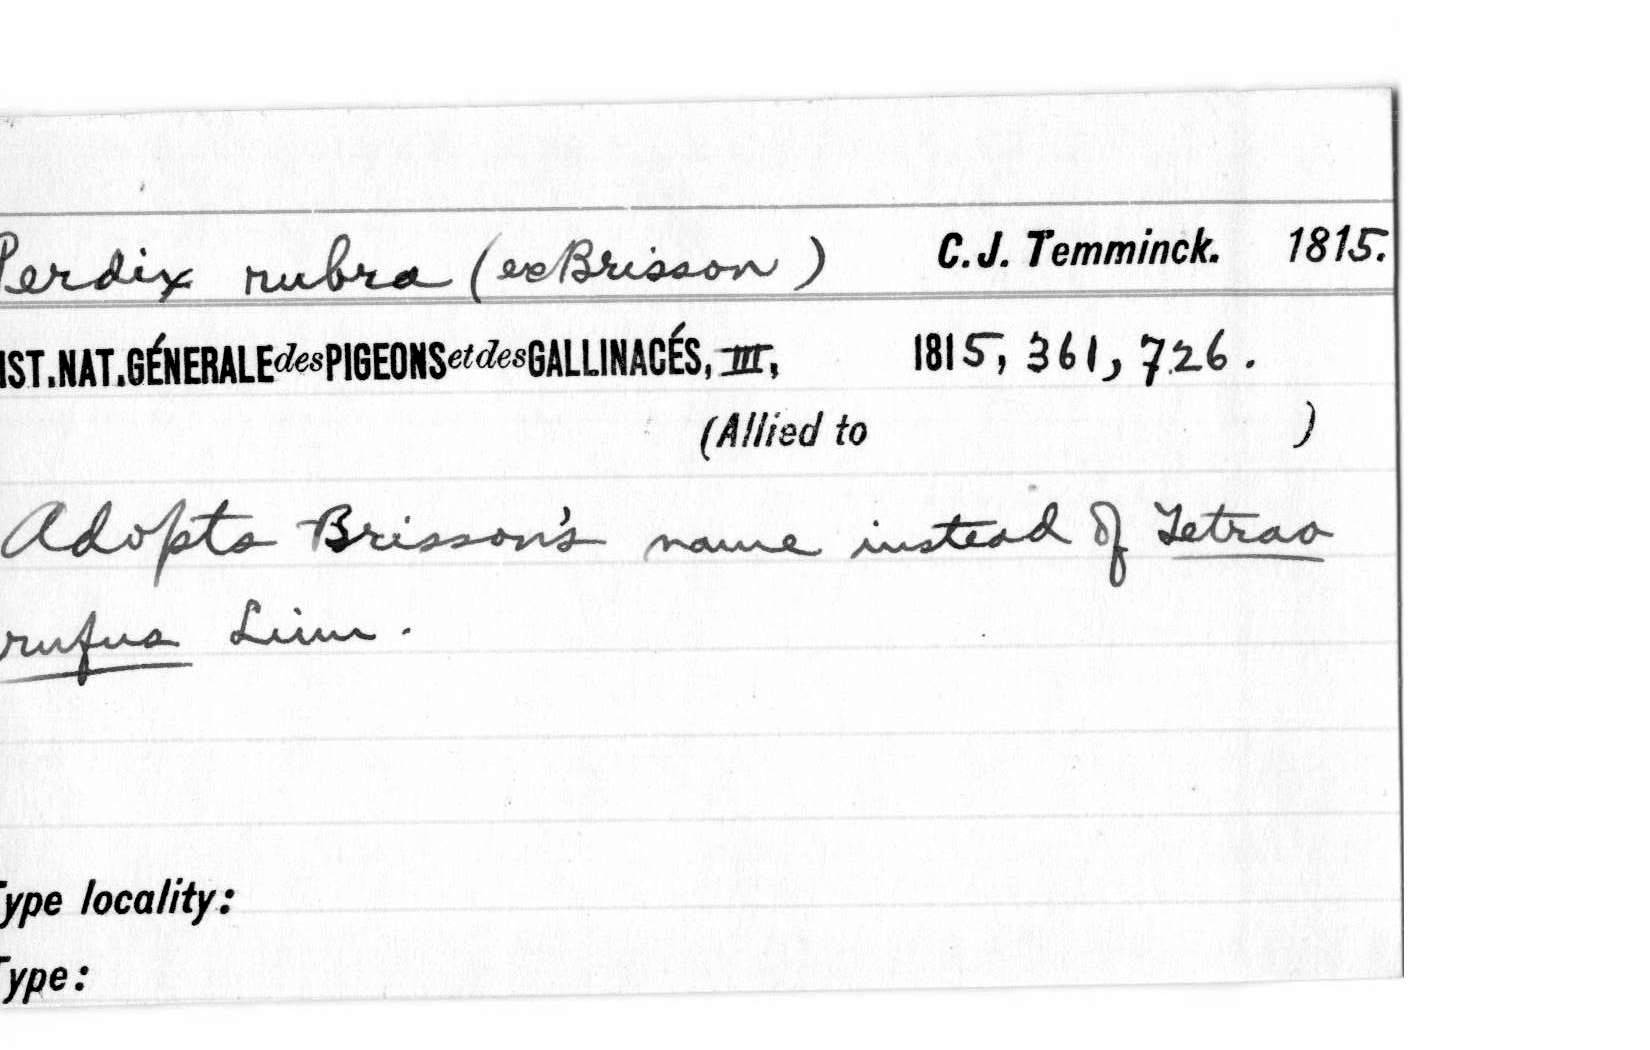 Perdix rubra (ex Brisson) C.J. Temminck. 1815.
IST.NAT.GÉNERALE des PIGEONS et des GALLINACÉS, III, 1815, 361, 726.
(Allied to )
Adopts Brisson's name instead of Tetrao
rufus Linn.
Type locality:
Type: